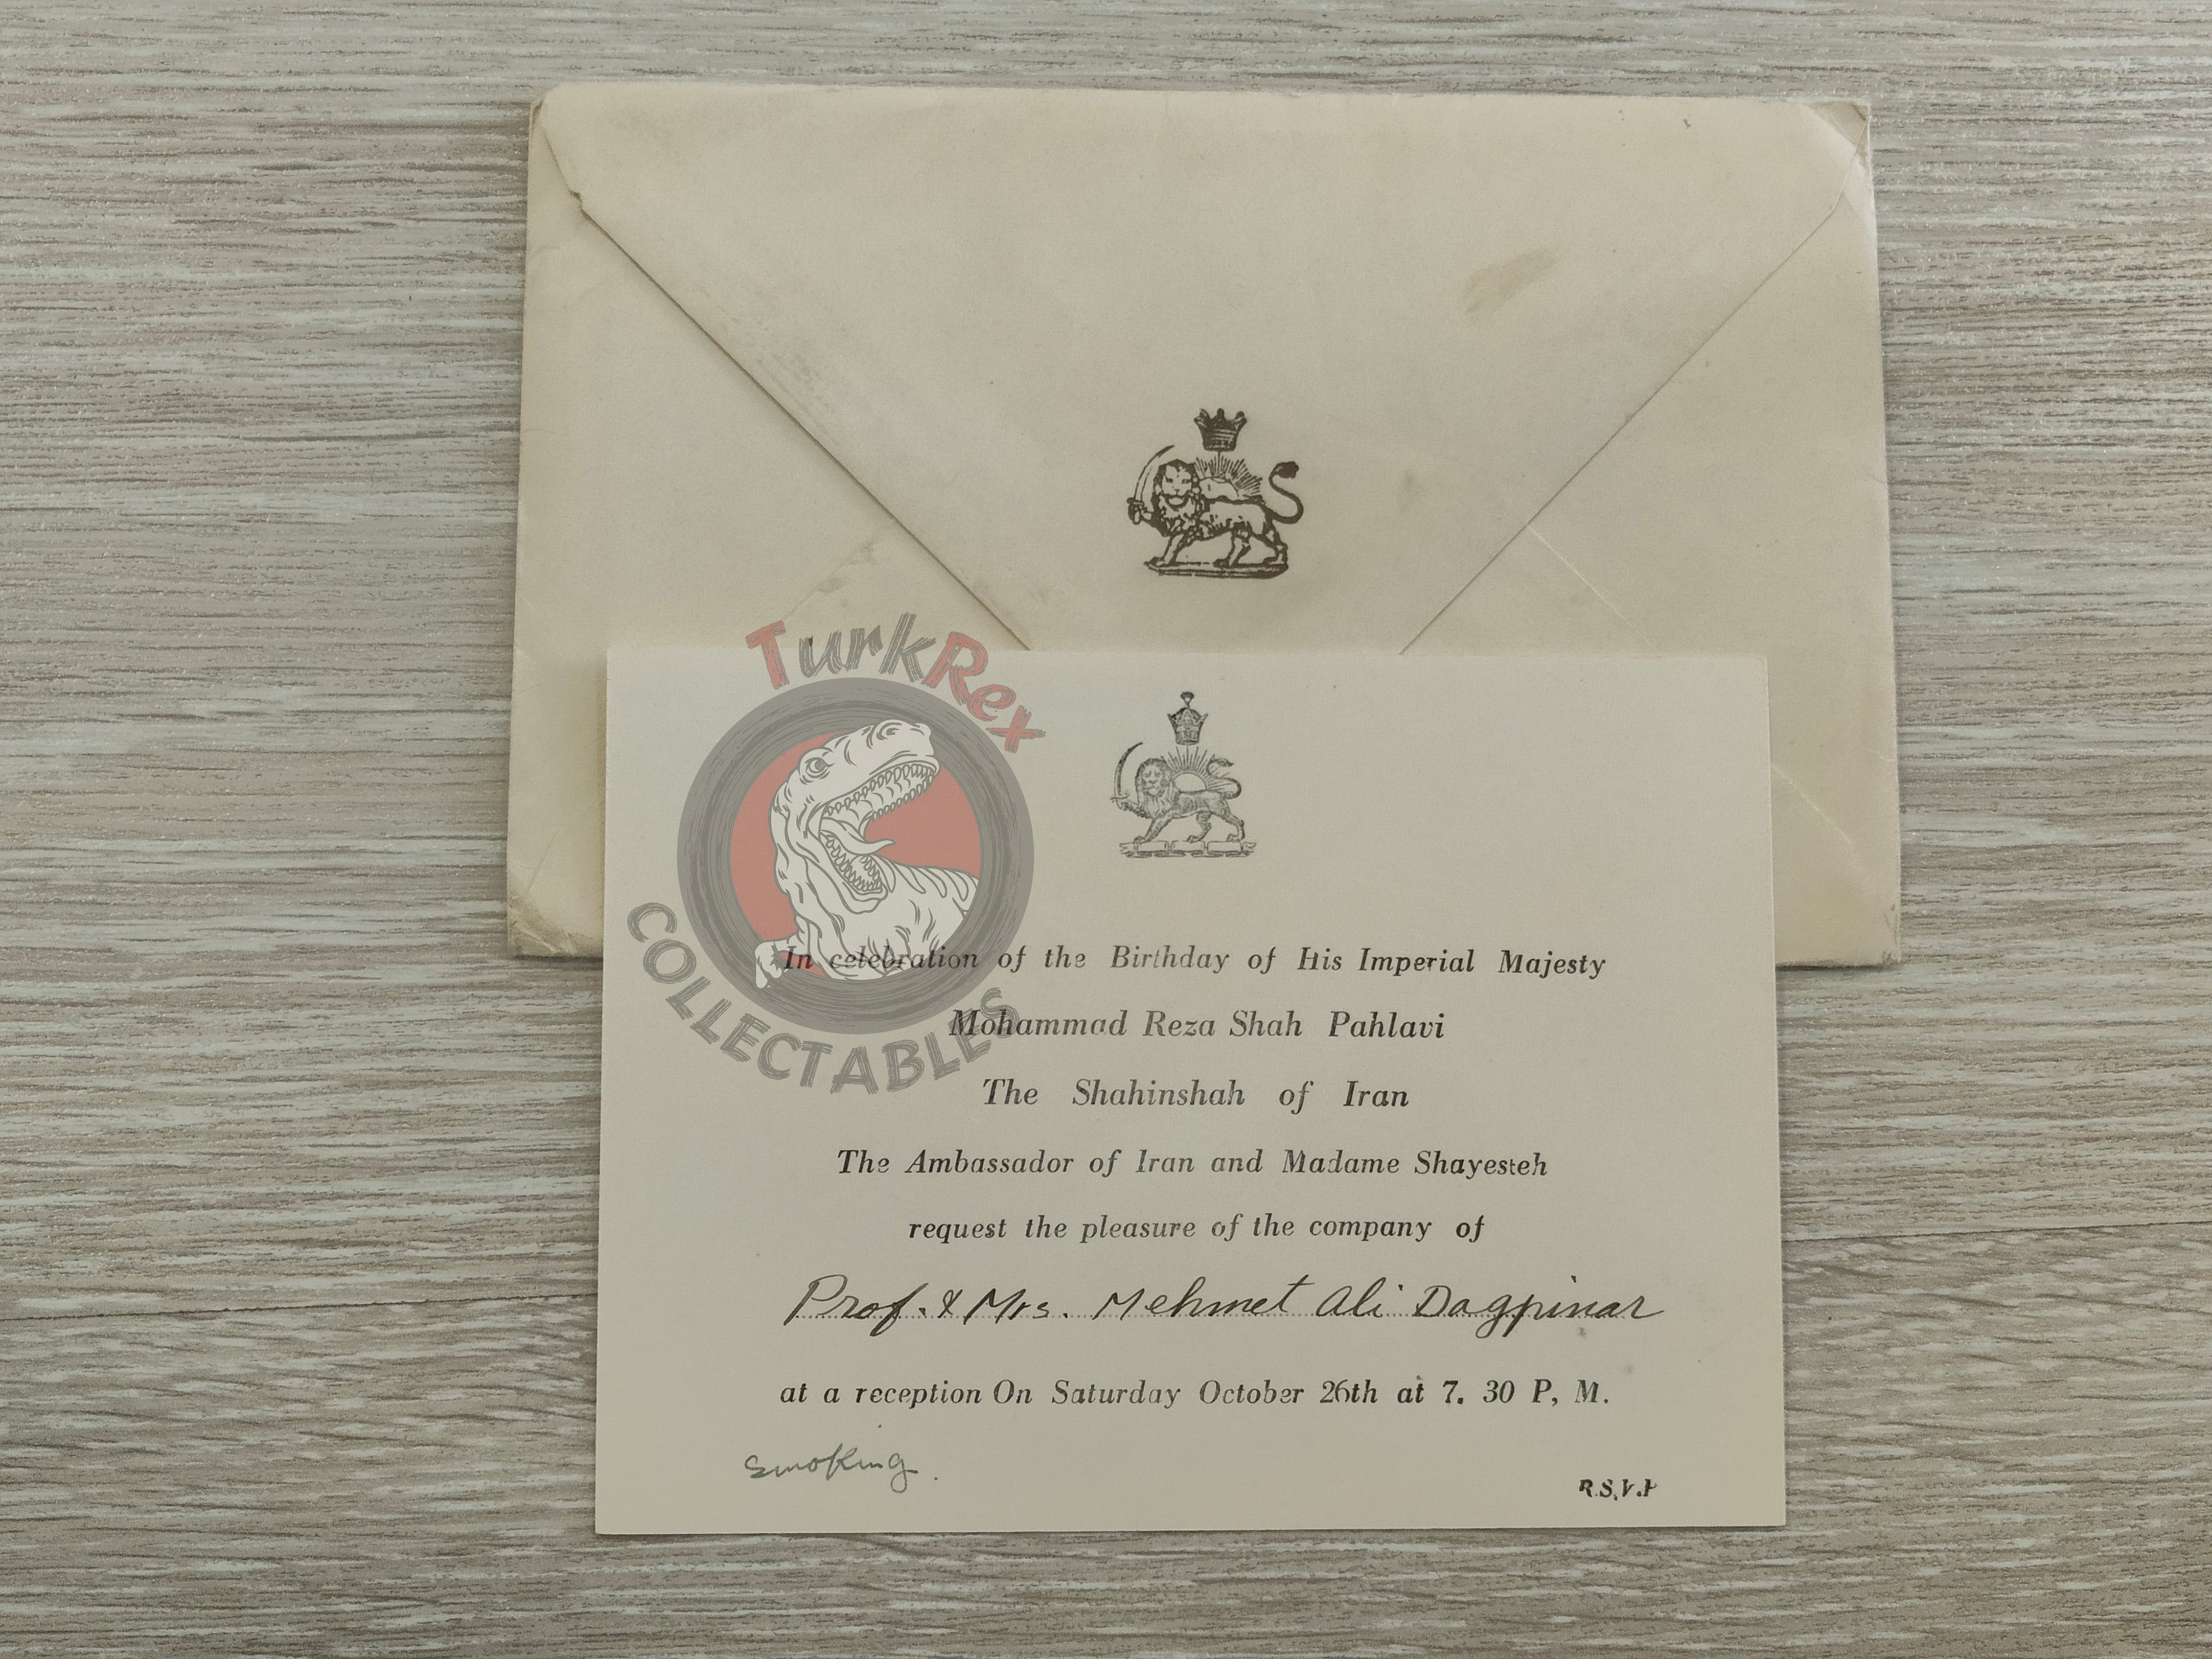 TurkRex
COLLECTABLES
In celebration of the Birthday of His Imperial Majesty
Mohammad Reza Shah Pahlavi
The Shahinshah of Iran
The Ambassador of Iran and Madame Shayesteh
request the pleasure of the company of
Prof. & Mrs. Mehmet Ali Dagpinar
at a reception On Saturday October 26th at 7. 30 P, M.
Smoking.
R.S.V.P